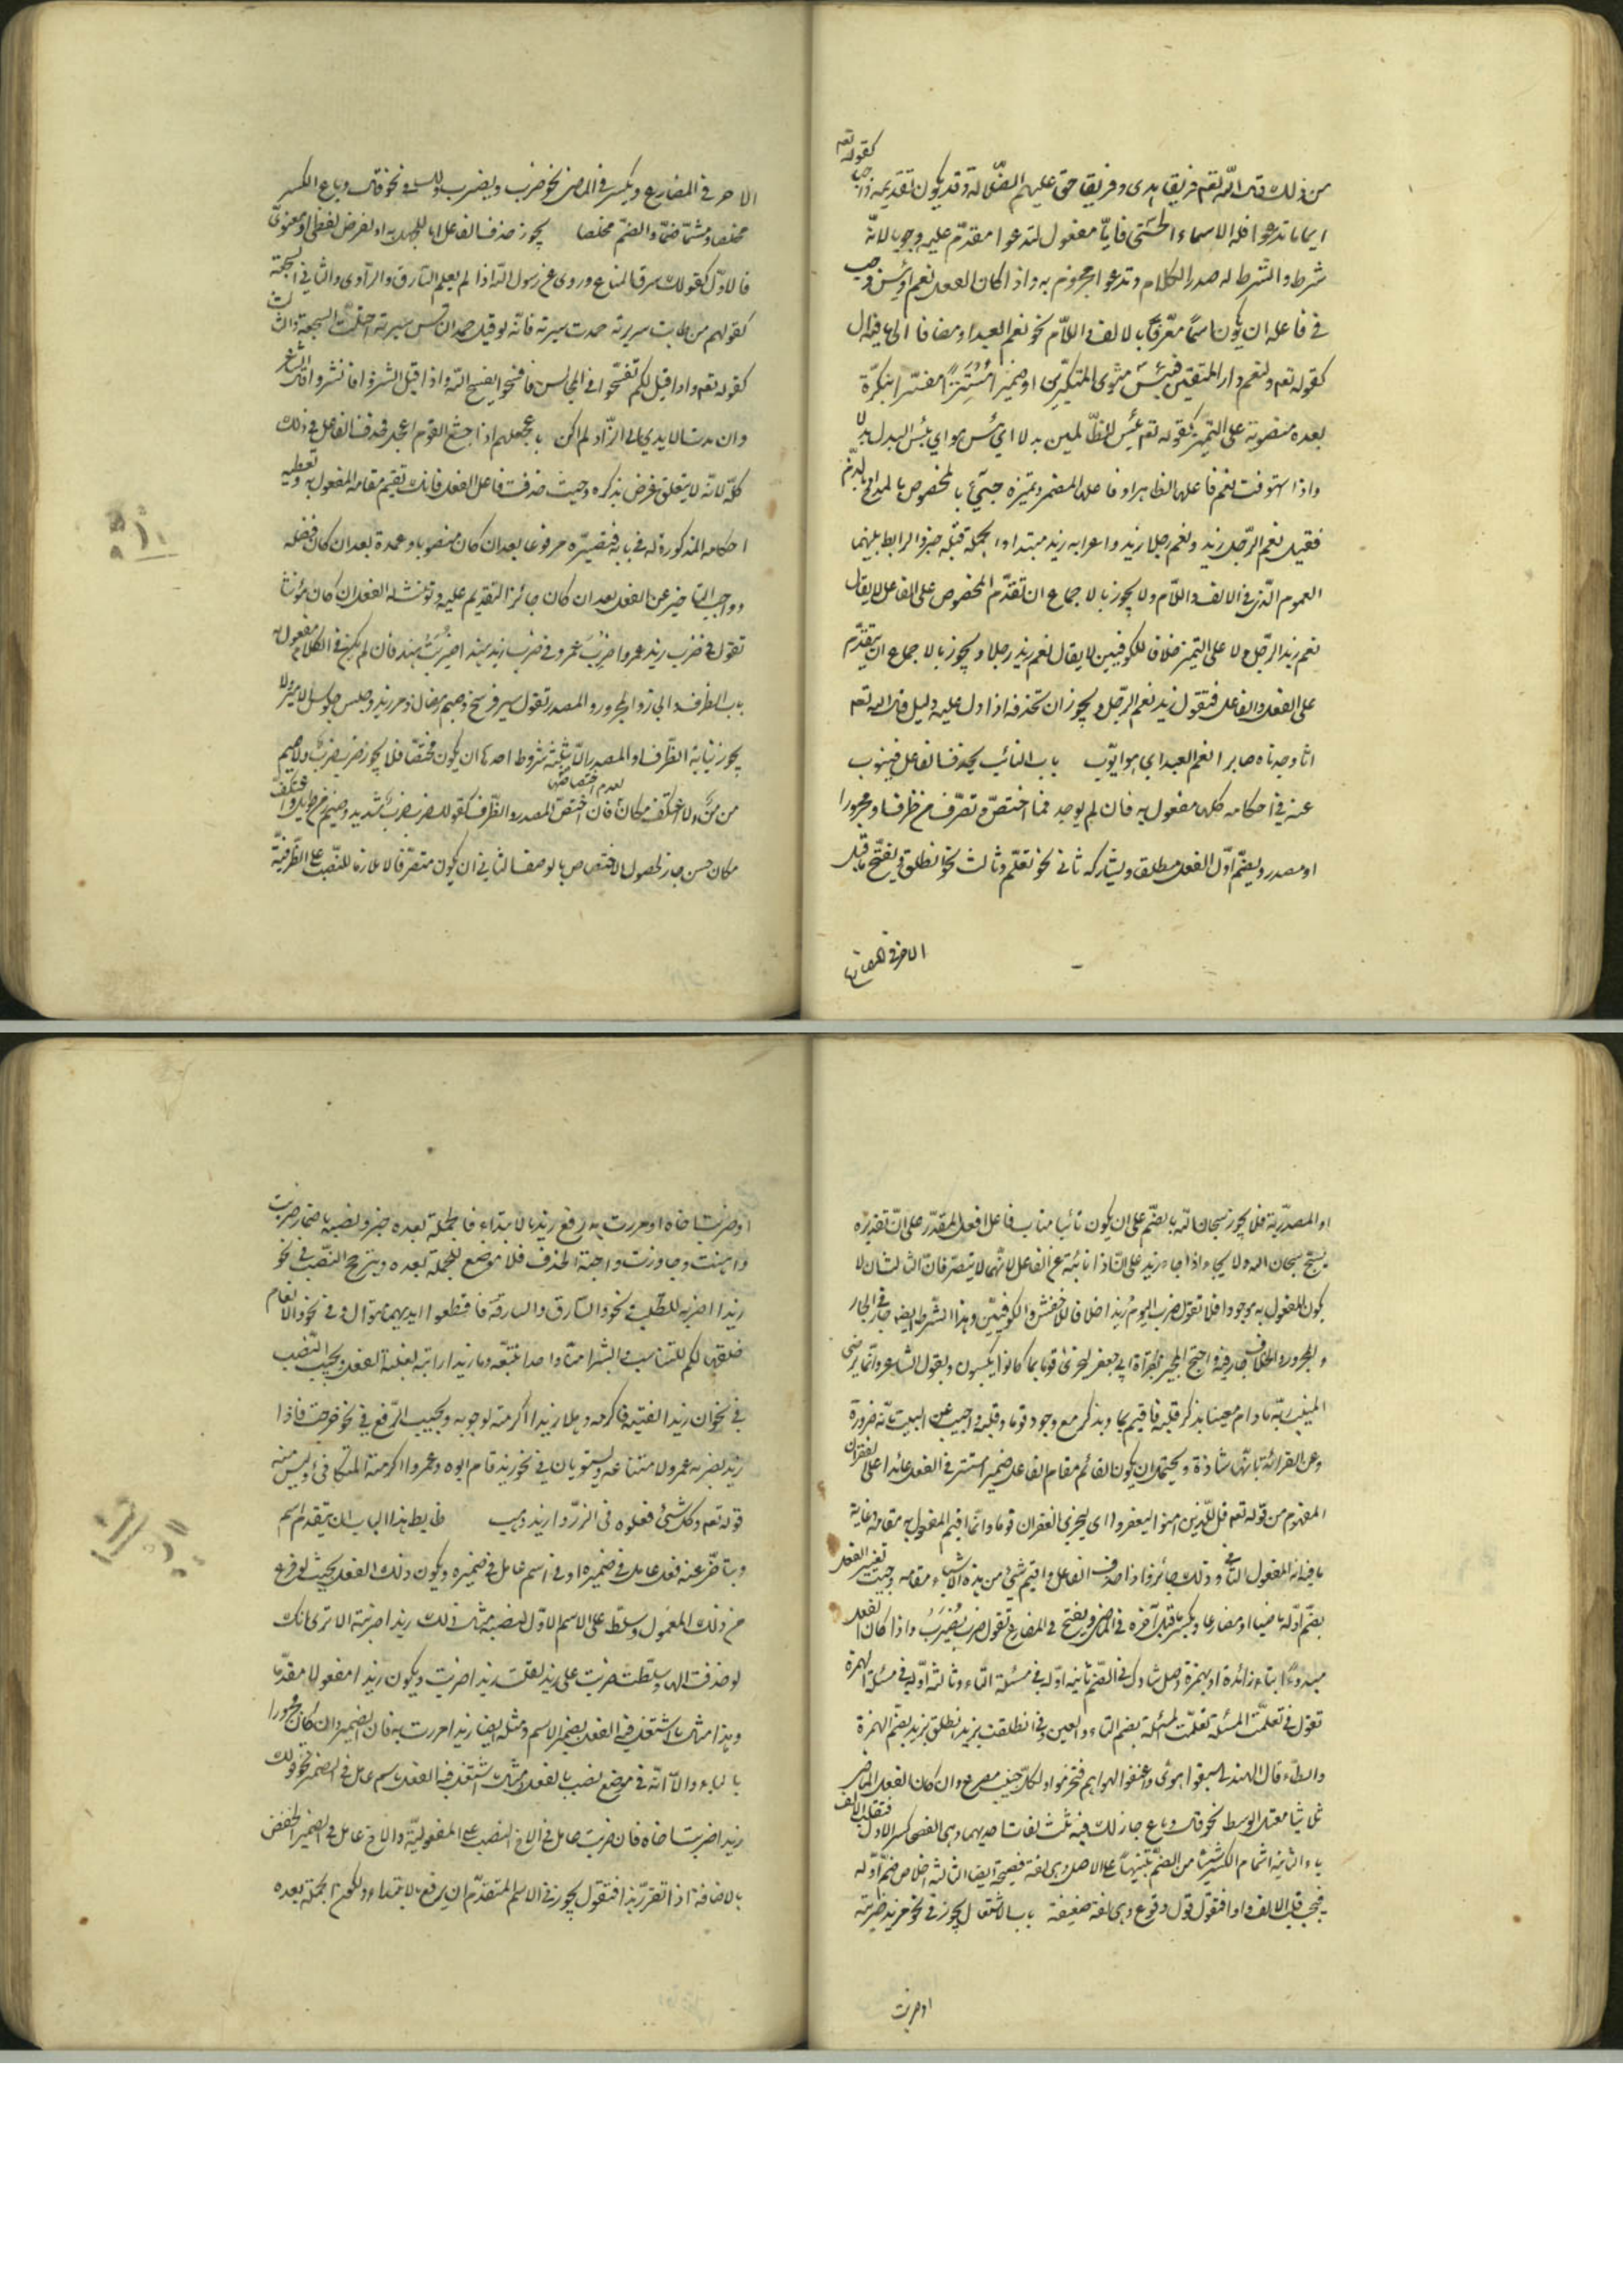 كقوله تعم
من ذلك قال الله تعم فريقا هدى وفريقا حق عليهم الضلالة وقد يكون تقديمه واجب
ايا ما تدعوا فله الاسماء الحسنى فايا مفعول لتدعوا مقدم عليه وجوبا لانه
شرط والشرط له صدر الكلام وتدعوا مجزوم به واذا كان الفعل نعم او بئس وجب
في فاعله ان يكون اسما معرفا بالالف واللام نحو نعم العبد او مضافا الى ما فيه ال
كقوله تعم ولنعم دار المتقين فبئس مثوى المتكبرين او ضميرا مستترا مفسرا بنكرة
بعده منصوبة على التميز كقوله تعم بئس للظالمين بدلا اى بئس هو اي بئس البدل بدلا
واذا استوفت نعم فاعلها الظاهر او فاعلها المضمر وتميزه جيئ بالمخصوص بالمدح او الذم
فقيل نعم الرجل زيد ونعم رجلا زيد واعرابه زيد مبتداء والجملة قبله خبر والرابط بينهما
العموم الذى في الالف واللام ولا يجوز بالاجماع ان تقدم المخصوص على الفاعل لا يقال
نعم زيد الرجل ولا على التميز خلافا للكوفيين لا يقال نعم زيد رجلا ويجوز بالاجماع ان يتقدم
على الفعل والفاعل فتقول زيد نعم الرجل ويجوز ان تحذفه اذا دل عليه دليل قال الله تعم
انا وجدناه صابرا نعم العبد اي هو ايوب باب النائب يحذف الفاعل فينوب
عنه في احكامه كلها مفعول به فان لم يوجد فما اختص وتصرف من ظرف او مجرور
او مصدر ويضم اول الفعل مطلقا ويشاركه ثاني نحو تعلم وثالث نحو انطلق ويفتح ما قبل
الاخر في المضارع
الاخر في المضارع ويكسر في الماضى نحو ضرب ويضرب ولك في نحو قال وباع الكسر
مخلصا ومشما ضما والضم مخلصا يجوز حذف الفاعل اما للجهل به او لغرض لفظى او معنوى
فالاول كقولك سرق المتاع وروى عن رسول الله اذا لم يعلم السارق والراوى والثاني في السجعة
كقولهم من طابت سريرته حمدت سيرته فانه لو قيل حمد الناس سيرته اختلفت السجعة والثالث
كقوله تعم واذا قيل لكم تفسحوا في المجالس فافسحوا يفسح الله واذا قيل انشزوا فانشزوا قال الشاعر
وان مدت الايدي الى الزاد لم اكن باعجلهم اذا جشع القوم اعجل فحذف الفاعل في ذلك
كله لانه لا يتعلق غرض بذكره وحيث حذفت فاعل الفعل فانك تقيم مقامه المفعول به وتعطيه
احكامه المذكورة له في بابه فتصيره مرفوعا بعد ان كان منصوبا وعمدة بعد ان كان فضله
وواجب التاخير عن الفعل بعد ان كان جائز التقديم عليه وتؤنث له الفعل ان كان مؤنثا
تقول في ضرب زيد عمروا ضرب عمرو وفي ضرب زيد هندا ضربت هند فان لم يكن في الكلام مفعول به
ناب الظرف او الجار والمجرور او المصدر تقول سير فرسخ وصيم رمضان ومر بزيد وجلس جلوس الامير ولا
يجوز نيابة الظرف والمصدر الا بثلثة شروط احدها ان يكون مختصا فلا يجوز ضرب ضرب ولا صيم
لعدم اختصاصها
من زمن ولا اعتكف مكان فان اختص المصدر والظرف كقولك ضرب ضرب شديد وصيم زمن طويل واعتكف
مكان حسن جاز لحصول الاختصاص بالوصف الثاني ان يكون متصرفا لا ملازما للنصب على الظرفية
او المصدرية فلا يجوز سبحان الله بالضم على ان يكون نائبا مناب فاعل فعل المقدر على ان تقديره
يسبح سبحان الله ولا يجاء اذا جاء زيد على ان اذا نائبة عن الفاعل لانهما لا يتصرفان الثالث ان لا
يكون المفعول به موجودا فلا تقول ضرب اليوم زيدا خلافا للاخفش والكوفيين وهذا الشرط ايضا جار في الجار
والمجرور والخلاف جار فيه واحتج المجيز بقراءة ابي جعفر ليجزى قوما بما كانوا يكسبون وبقول الشاعر وانما يرضى
المنيب ربه ما دام معنيا بذكر قلبه فاقيم بما وبذكر مع وجود قوما وقلبه واجيب عن البيت بانه ضرورة
وعن القراءة بانها شاذة ويحتمل ان يكون القائم مقام الفاعل ضميرا مستترا في الفعل عائدا على الغفران
المفهوم من قوله تعم قل للذين امنوا يغفروا اى ليجزى الغفران قوما وانما اقيم المفعول به مقامه وغاية
ما فيه انه المفعول الثاني وذلك جائز واذا حذف الفاعل واقيم شئ من هذه الاشياء مقامه وجب تغيير الفعل
بضم اوله ماضيا او مضارعا وبكسر ما قبل آخره في الماضى ويفتح في المضارع تقول ضرب يضرب واذا كان الفعل
مبدوءا بتاء زائدة او بهمزة وصل شارك في الضم ثانيه اوله في مسئلة التاء وثالثه اوله في مسئلة الهمزة
تقول في تعلمت المسئلة تعلمت المسئلة بضم التاء والعين وفي انطلقت بزيد انطلق بزيد بضم الهمزة
والطاء قال الهذلى سبقوا هوى واعنقوا لهواهم فتخرموا ولكل جنب مصرع وان كان الفعل الماضى
ثلاثيا معتل الوسط نحو قال وباع جاز لك فيه ثلث لغات احديها وهى الفصحى كسر الاول فتقلب الالف
ياء الثانية اشمام الكسر شيئا من الضم تنبيها على الاصل وهى لغة فصيحة ايضا الثالثة اخلاص ضم اوله
فيجب قلب الالف واوا فتقول قول وبوع وهى لغة ضعيفة باب الاشتغال يجوز في نحو زيد ضربته
او مررت
او ضربت اخاه او مررت به رفع زيد بالابتداء فالجملة بعده خبر ونصبه باضمار ضربت
واهنت وجاوزت واجبة الحذف فلا موضع للجملة بعده ويترجح النصب في نحو
زيدا اضربه للطلب ونحو والسارق والسارقة فاقطعوا ايديهما متوال وفي نحو والانعام
خلقها لكم للتناسب وابشرا منا واحدا نتبعه وما زيدا رايته لغلبة الفعل ويجب النصب
في نحو ان زيدا لقيته فاكرمه وهلا زيدا اكرمته لوجوبه ويجب الرفع في نحو خرجت فاذا
زيد يضربه عمرو لامتناعه ويستويان في نحو زيد قام ابوه وعمروا اكرمته للتكافئ وليس منه
قوله تعم وكل شئ فعلوه في الزبر وازيد ذهب به ضابط هذا الباب ان يتقدم اسم
ويتاخر عنه فعل عامل في ضميره او في اسم عامل في ضميره ويكون ذلك الفعل بحيث لو فرغ
من ذلك المعمول وسلط على الاسم الاول لنصبه مثال ذلك زيدا ضربته الا ترى انك
لو حذفت الهاء وسلطت ضربت على زيد لقلت زيدا ضربت ويكون زيدا مفعولا مقدما
وهذا مثال ما اشتغل فيه الفعل بضمير الاسم ومثله ايضا زيدا مررت به فان الضمير وان كان مجرورا
بالباء الا انه في موضع نصب بالفعل ومثال ما اشتغل فيه الفعل باسم عامل في الضمير نحو قولك
زيدا ضربت اخاه فان ضربت عامل في الاخ النصب على المفعولية والاخ عامل في الضمير الخفض
بالاضافة اذا تقرر هذا فنقول يجوز في الاسم المتقدم ان يرفع بالابتداء وتكون الجملة بعده